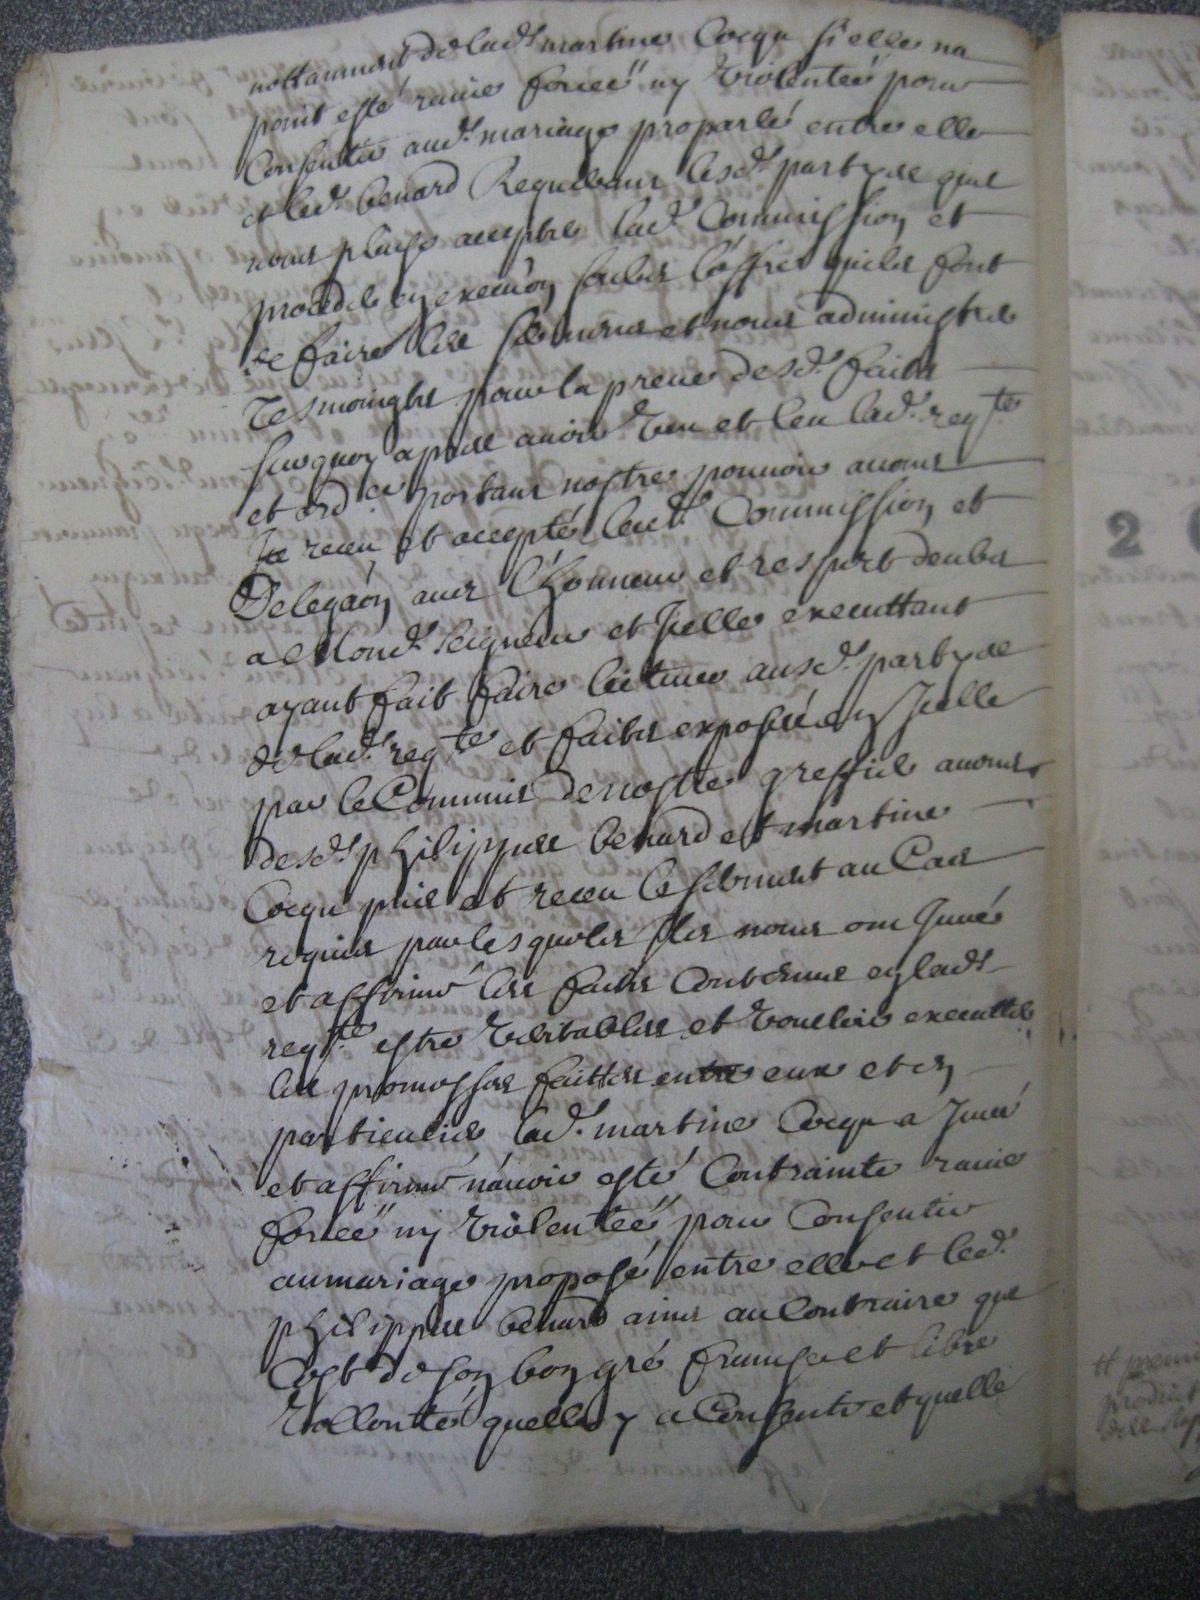 nottamment de lad.^e martine Cocqu si elle na
point esté ravie forceé ny violenteé pour
Consentir aud.^t mariage proparlé entre elle
et led.^t benard Requerans lesd.^s partyes que
nous plaise accepter lad.^e Commission et
proceder en execu'on soubs l'offre quils font
de faire les serments et nous administrer
tesmoinghs pour la preuve desd.^s faits
surquoy apres avoir veu et leu lad.^e req.^te
et ord.^ce portant nostre pouvoir avons
receu et accepté lad.^e Commission et
Delega'on avec l'honneur et respect deubs
a Mond.^t seigneur et Jcelle executtant
ayant fait faire lecture ausd.^s partyes
de lad.^e req.^te et faits exposés en Jcelle
par le Commis de nostre greffier avons
desd.^s philippes benard et martine
Cocqu pris et receu le serment au Cas
requis par lesquels Jls nous ont Juré
et affirmé les faits Contenus en lad.^e
req.^te estre veritables et vouloir executter
les promesses faittes entre eux et en
particulier lad.^e martine Cocqu a Juré
et affirmé n'avoir esté Contrainte ravie
forceé ny violenteé pour Consentir
au mariage proposé entre elle et led.^t
philippes benard ains au Contraire que
Cest de son bon gré franche et libre
vollonté quelle y a Consenty et quelle
2